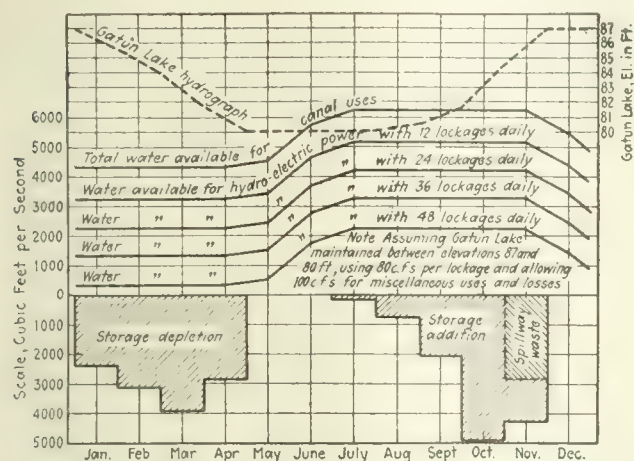 Gatun Lake hydrograph
canal uses
Total water available for
Water available for hydro-electric power
" with 12 lockages daily
" with 24 lockages daily
Water " " " with 36 lockages daily
Water " " " with 48 lockages daily
Water " "
Note Assuming Gatun Lake
maintained between elevations 87 and
80 ft, using 80 c.f.s per lockage and allowing
100 c f s for miscellaneous uses and losses
Storage depletion
Storage
addition
Spillway
waste
Scale, Cubic Feet per Second
6000
5000
4000
3000
2000
1000
0
1000
2000
3000
4000
5000
87
86
85
84
83
82
81
80
Gatun Lake, El. in Ft.
Jan. Feb Mar Apr May June July Aug Sept Oct. Nov. Dec.